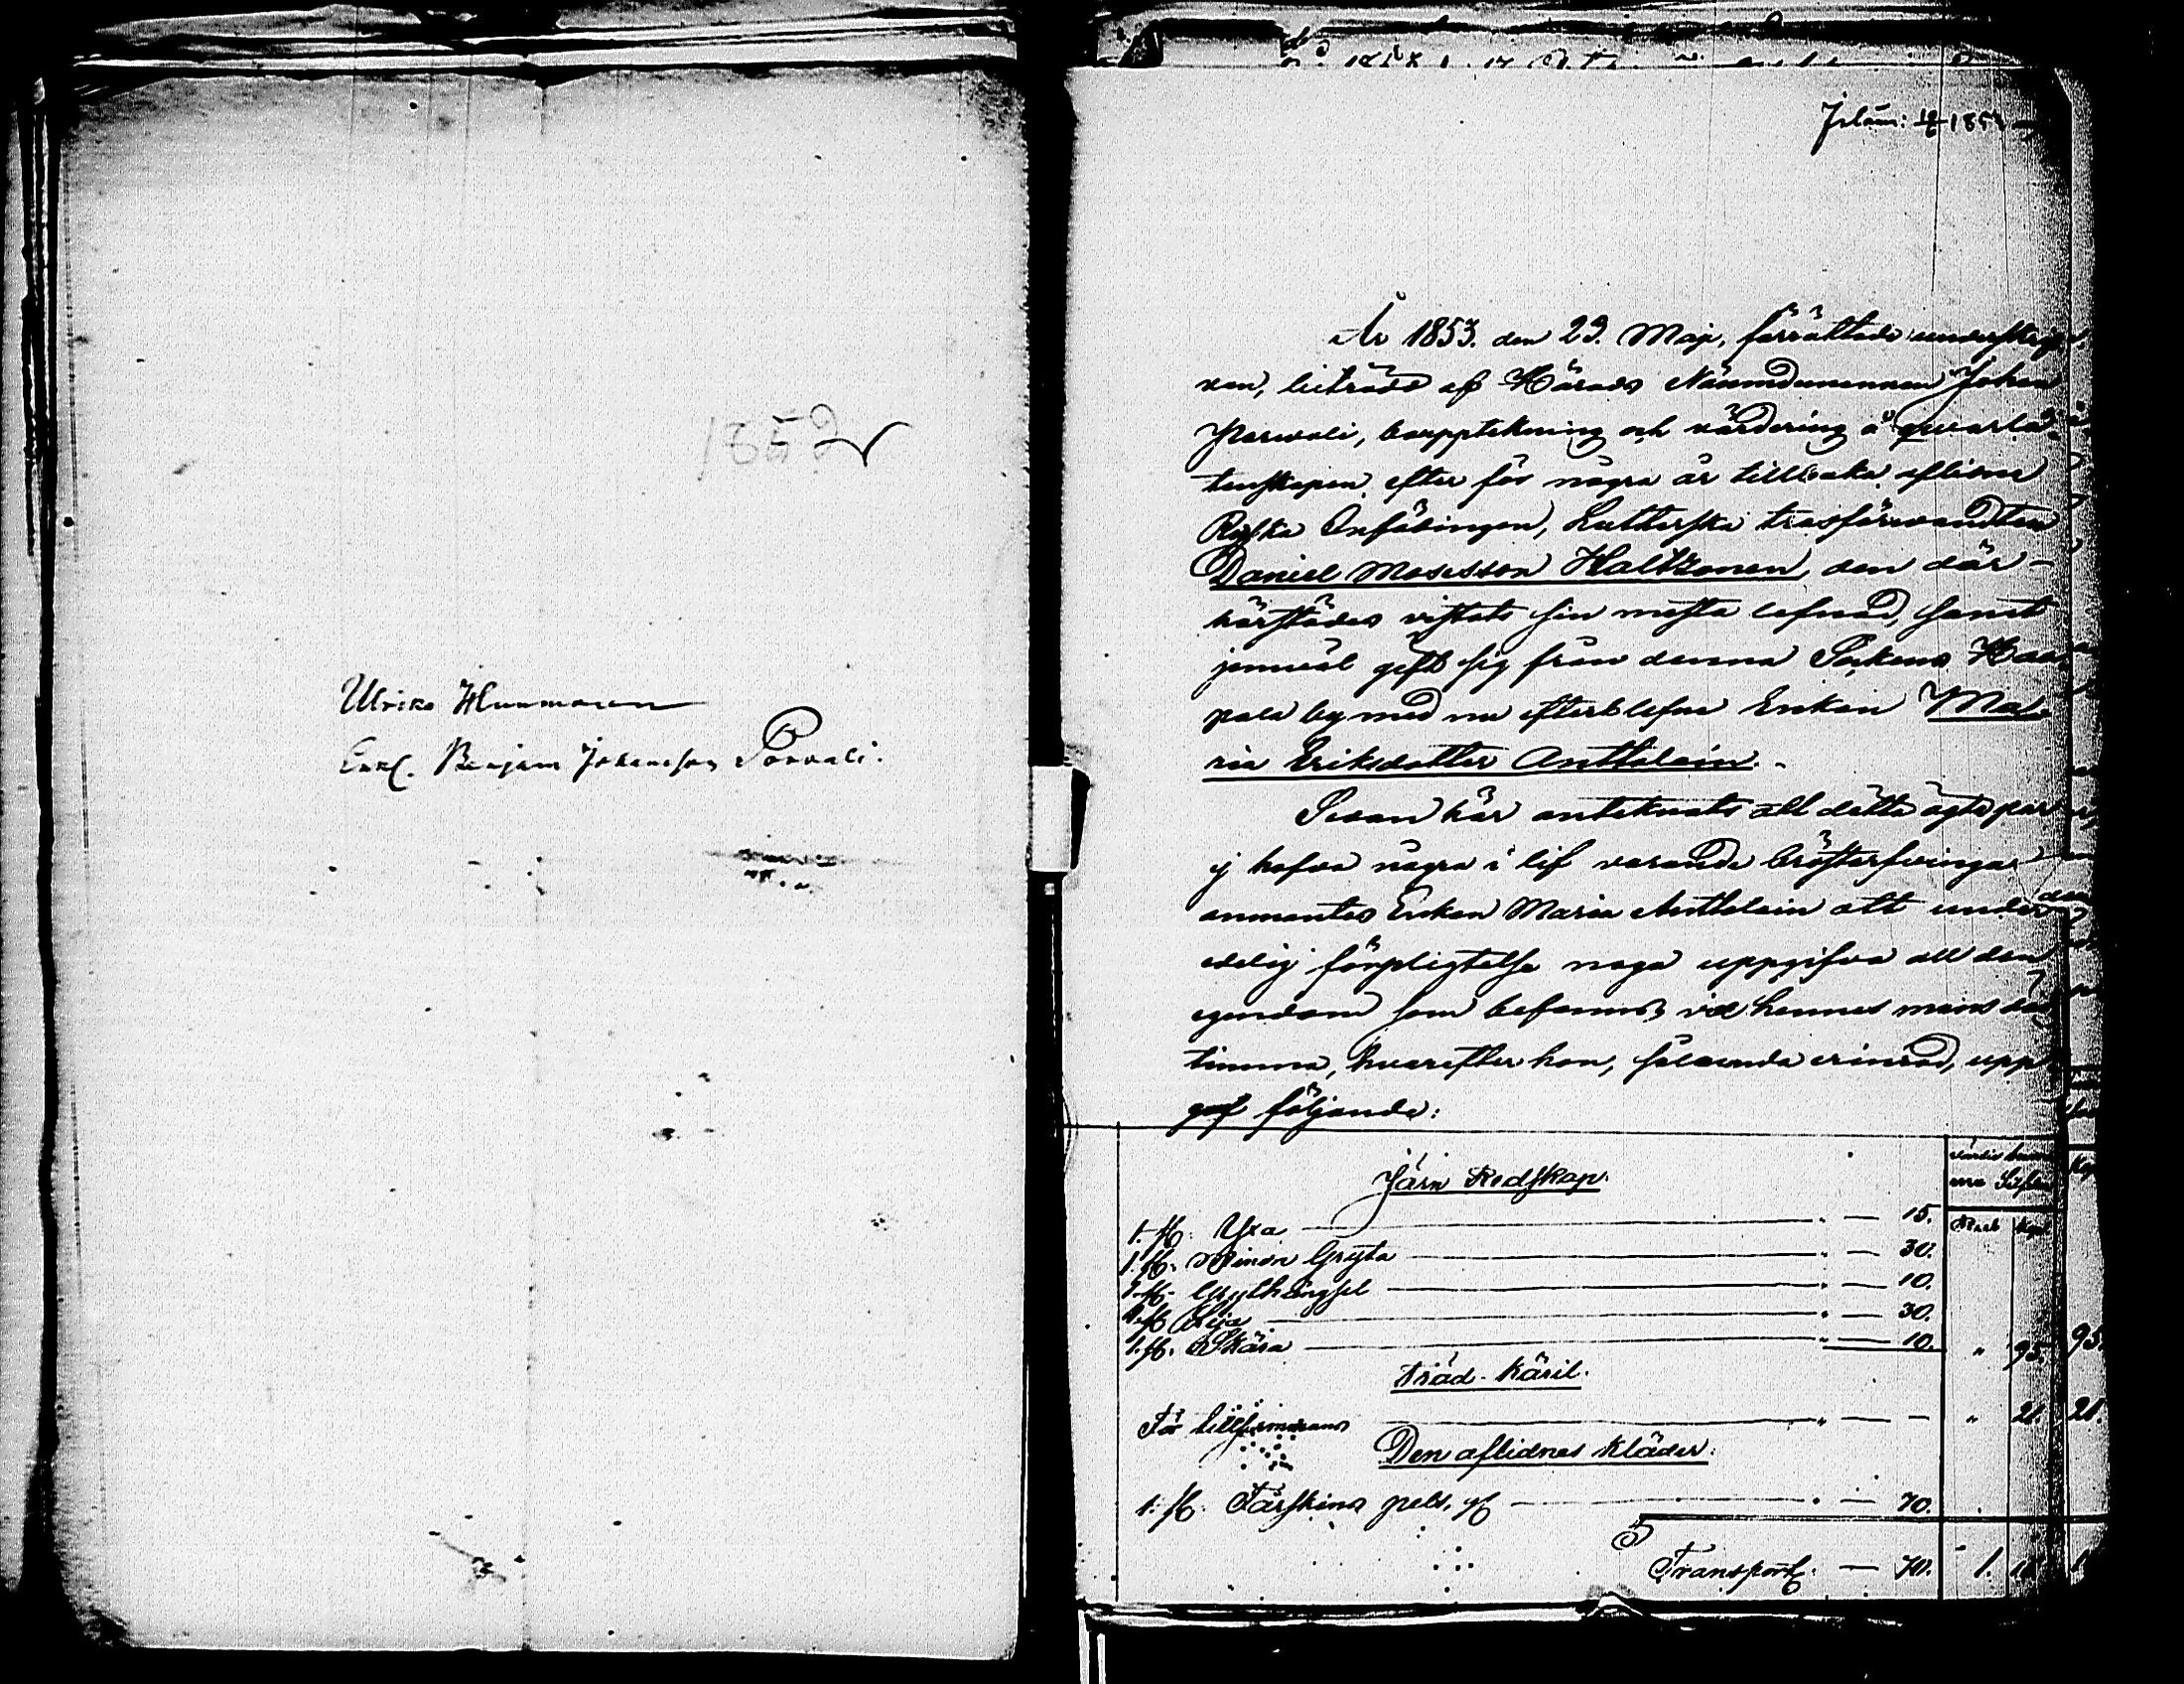 1852
Ulrika Hummonen
Enkl. Benjam Johansson Porvali.
Inläm: 1853
År 1853. den 23. Maji, förrättade underskrif
ven, biträdd af Härads Nämndemannen Johan
Parvali, bouppteckning och värdering å qvarlå
tenskapen efter för några år tillbaka aflidne
Ryska Lutherska trosförvandten
Daniel Mosesson Haltzonen, den där-
härstädes vistats sin mesta lefnad, samt
jemväl gift sig från denna Sockens
pala by med nu efterblefne Enkan Ma
ria Eriksdotter Anttolain.-
Sedan här antecknats att detta ägta par
ej hafva några i lif varande bröstarfvingar
anmantes Enkan Maria Anttolain att under
edelig förpligtelse noga uppgifva all den
egendom som befanns vid hennes mans död
timma, hvarefter hon, sålunda erinrad, upp
gaf följande:
Järn Redskap.
1. st. Yxa — 15.
1. st. Gryta — 30.
1. st. Grythängsel — 10.
1. st. Lija — 30.
1. st. Skära — 10. " 95.
Träd-Käril.
För tillsammans — " 21.
Den aflidnes Kläder.
1. st. Fårskins pels, — 70.
Transport. — 70. 1. 16